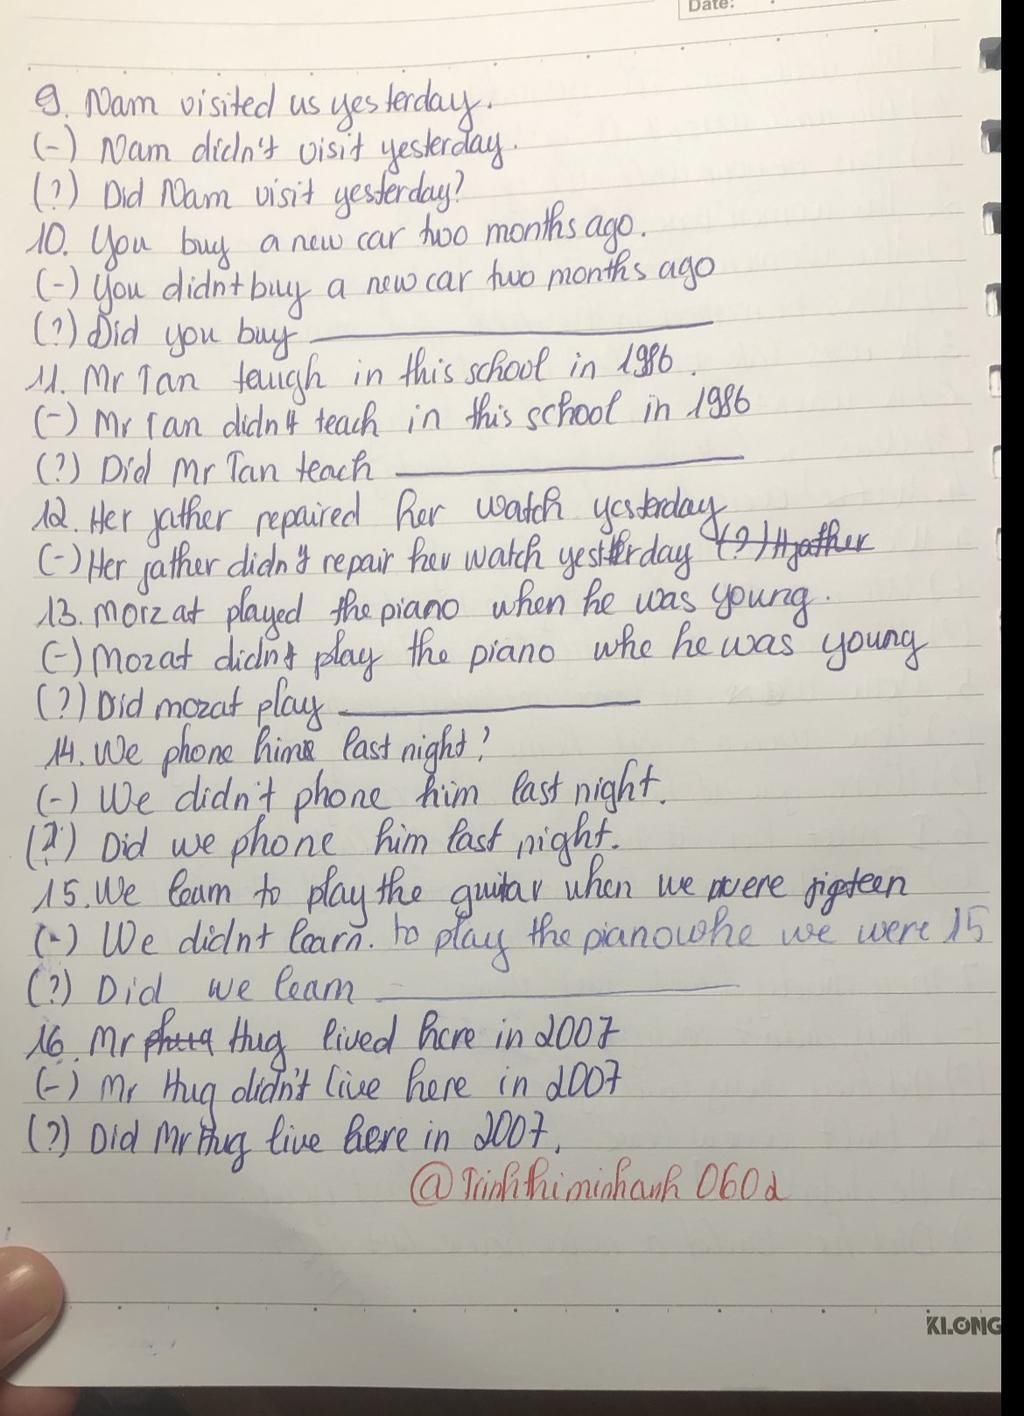 Date:
9. Nam visited us yesterday.
(-) Nam didn't visit yesterday.
(?) Did Nam visit yesterday?
10. You buy a new car two months ago.
(-) You didn't buy a new car two months ago
(?) Did you buy
11. Mr Tan teuigh in this school in 1986.
(-) Mr Tan didn't teach in this school in 1986
(?) Did Mr Tan teach
12. Her father repaired her watch yesterday
(-) Her father didn't repair her watch yesterday (?) H father
13. Morzat played the piano when he was young.
(-) Mozat didn't play the piano whe he was young
(?) Did mozat play
14. We phone him last night?
(-) We didn't phone him last night.
(?) Did we phone him last night.
15. We learn to play the guitar when we were
(-) We didn't learn. to play the piano whe we were 15
(?) Did we learn
16. Mr Hug lived here in 2007
(-) Mr Hug didn't live here in 2007
(?) Did Mr Hug live here in 2007.
@Trinhthiminhanh0602
KLONG